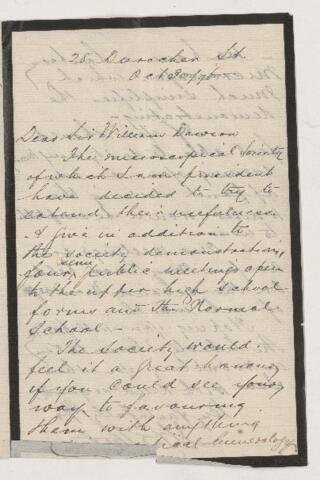 25 Durocher St
Oct
Dear Sir William Dawson
The microscopical Society
of which I am president
have decided to try to
extend their usefulness
& give in addition to
the society demonstrations,
four semi public meetings open
to the upper high school
forms and the Normal
School -
The Society would
feel it a great honour
if you could see your
way to favouring
them with anything
mineralogy